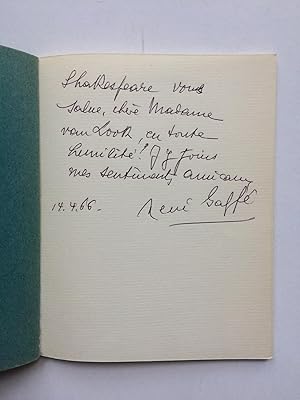 Shakespeare vous
salue, chère Madame
van Look, en toute
humilité! J'y joins
mes sentiments amicaux
14.4.66.
René Gaffé